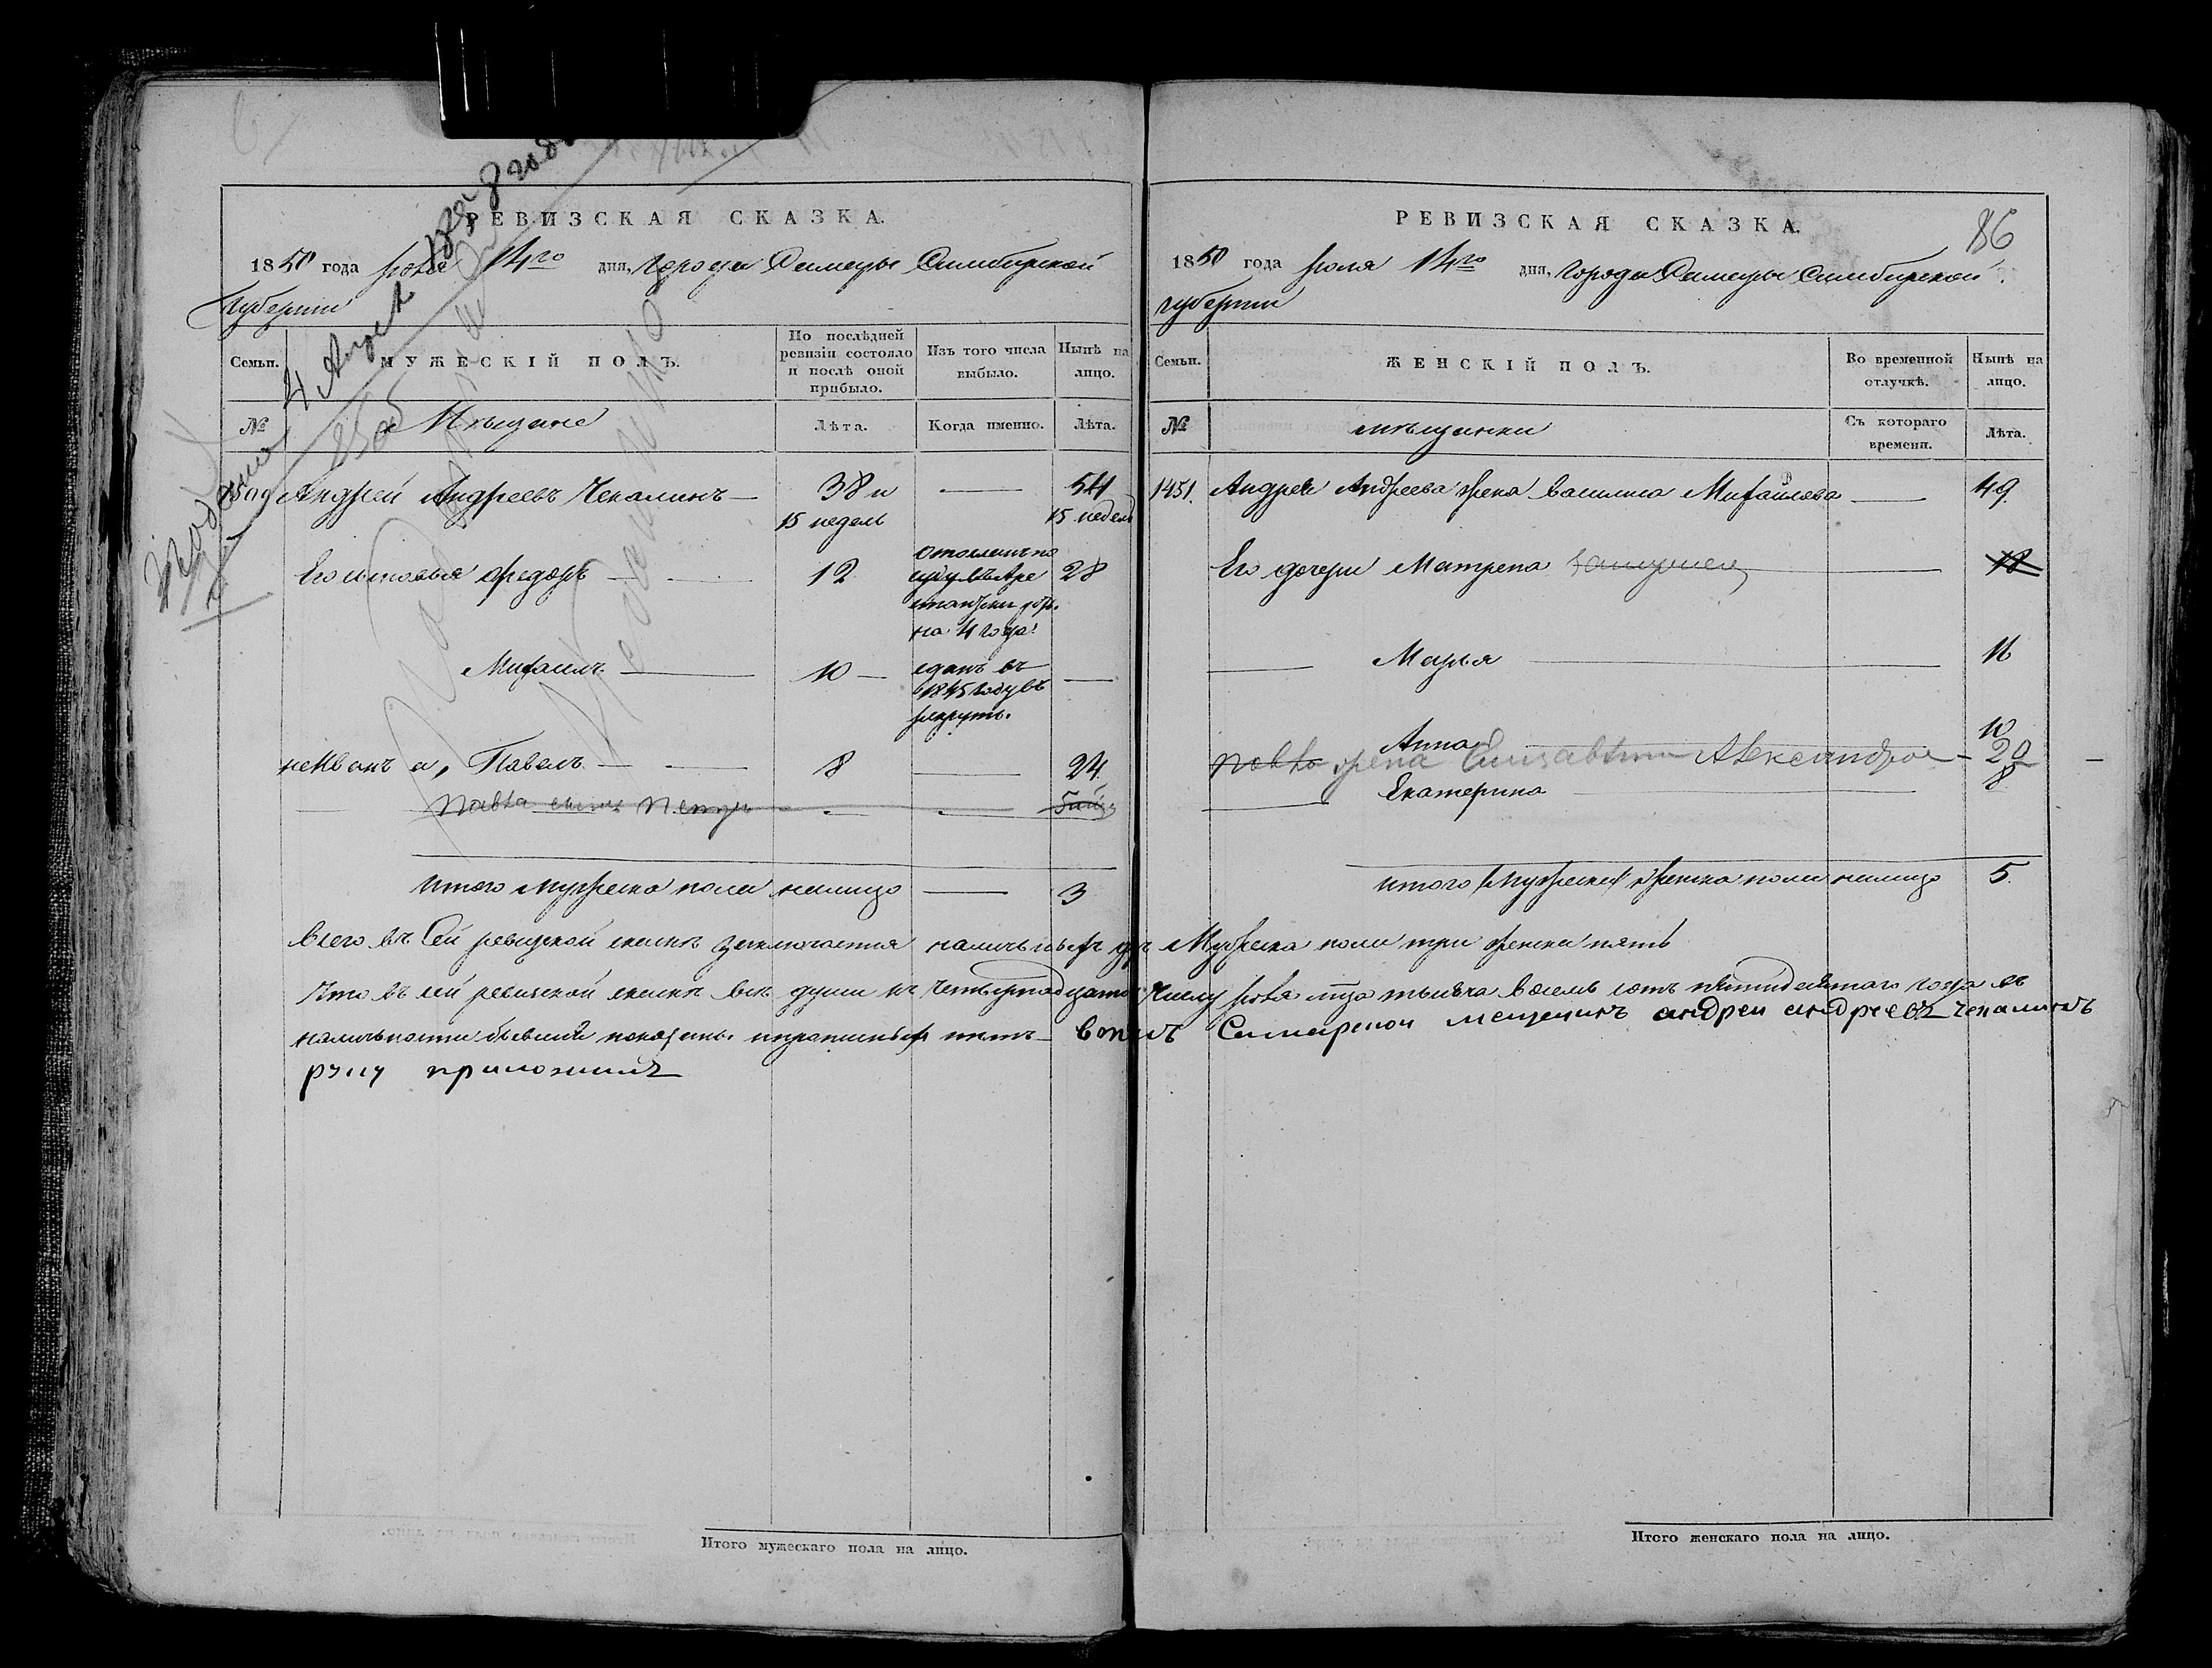 РЕВИЗСКАЯ СКАЗКА.
1850 года Июля 14го дня, города Самары Симбирской
губернии
Семьи. МУЖЕСКІЙ ПОЛЪ. По послѣдней ревизіи состояло и послѣ оной прибыло. Изъ того числа выбыло. Нынѣ на лицо.
№ Мѣщане Лѣта. Когда именно. Лѣта.
Андрей Андреевъ Чекалинъ — 38 и — 54
15 недель 15 недель
Его сыновья Федоръ — 12 28
на 4 года
Михаилъ — 10 — сданъ въ —
1845 году въ
рекруты.
Павелъ — 8 — 24
Павла сынъ Петръ
Итого мужеска пола налицо — 3
4 Апреля
РЕВИЗСКАЯ СКАЗКА.
86
1850 года Июля 14го дня, города Самары Симбирской
губернии
Семьи. ЖЕНСКІЙ ПОЛЪ. Во временной отлучкѣ. Нынѣ на лицо.
№ мѣщанки Съ котораго времени. Лѣта.
1451. Андрея Андреева жена Василиса Михайлова — 49.
Его дочери Матрена — 18
— Марья — 16
Анна — 10
Павла жена Елизавета Александрова — 20
— Екатерина — 8
итого женска пола налицо 5.
Всего въ сей ревизской сказкѣ заключается наличныхъ душъ Мужеска пола три женска пять
Что въ сей ревизской сказкѣ всѣ души къ четырнадцатому числу Июля м-ца тысяча восемь сотъ пятидесятого года въ
наличности бывшия показаны и прописныхъ нетъ — Самарской мещенинъ андреи андреевъ чекалинъ
руку приложилъ
Итого мужескаго пола на лицо.
Итого женскаго пола на лицо.